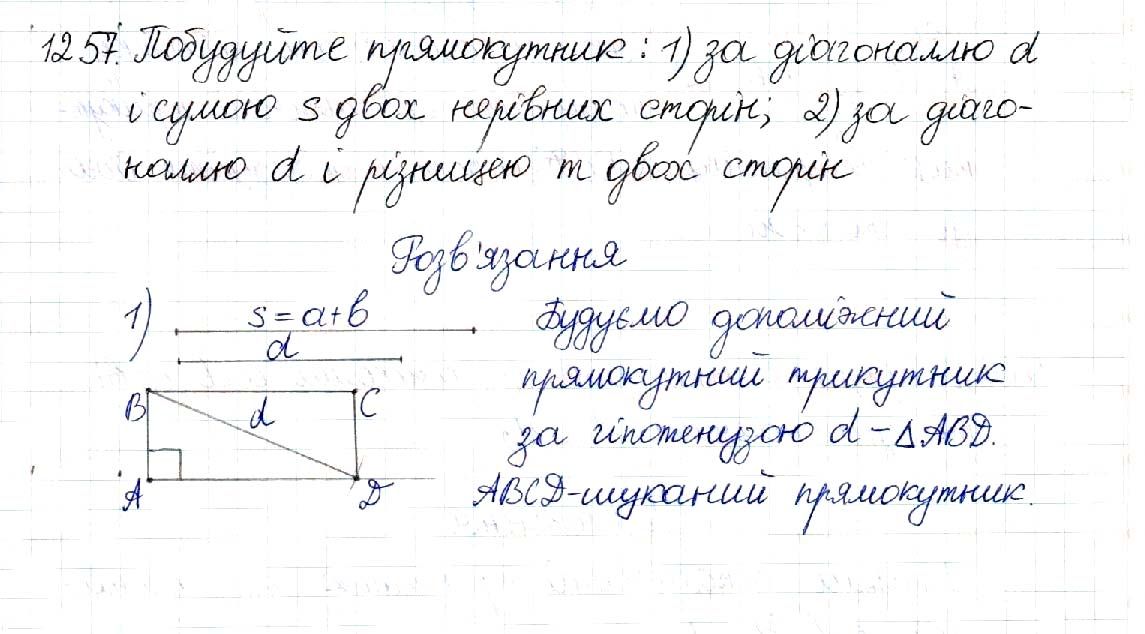 1257. Побудуйте прямокутник: 1) за діагоналлю d
і сумою s двох нерівних сторін; 2) за діаго-
наллю d і різницею m двох сторін
Розв'язання
1) s = a + b
d
Будуємо допоміжний
прямокутний трикутник
за гіпотенузою d - △ABD.
ABCD-шуканий прямокутник.
B d C
A D